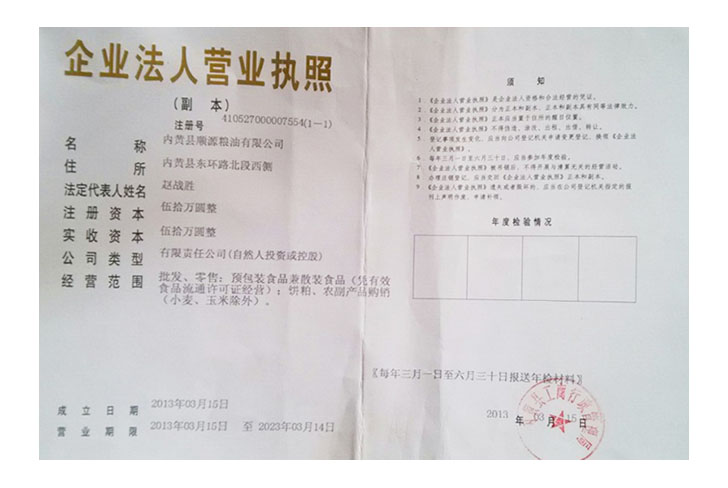 企业法人营业执照
(副 本)
注册号 410527000007554(1-1)
名 称 内黄县顺源粮油有限公司
住 所 内黄县东环路北段西侧
法定代表人姓名 赵战胜
注 册 资 本 伍拾万圆整
实 收 资 本 伍拾万圆整
公 司 类 型 有限责任公司(自然人投资或控股)
经 营 范 围 批发、零售：预包装食品兼散装食品（凭有效
食品流通许可证经营）；饼粕、农副产品购销
（小麦、玉米除外）。
成 立 日 期 2013年03月15日
营 业 期 限 2013年03月15日 至 2023年03月14日
须 知
1 《企业法人营业执照》是企业法人资格和合法经营的凭证。
2 《企业法人营业执照》分为正本和副本，正本和副本具有同等法律效力。
3 《企业法人营业执照》正本应当置于住所的醒目位置。
4 《企业法人营业执照》不得伪造、涂改、出租、出借、转让。
5 登记事项发生变化，应当向公司登记机关申请变更登记，换领《企业法
人营业执照》。
6 每年三月一日至六月三十日，应当参加年度检验。
7 《企业法人营业执照》被吊销后，不得开展与清算无关的经营活动。
8 办理注销登记，应当交回《企业法人营业执照》正本和副本。
9 《企业法人营业执照》遗失或者毁坏的，应当在公司登记机关指定的报
刊上声明作废，申请补领。
年 度 检 验 情 况
【每年三月一日至六月三十日报送年检材料】
2013 年 03 月 15 日
县工商行政管理局